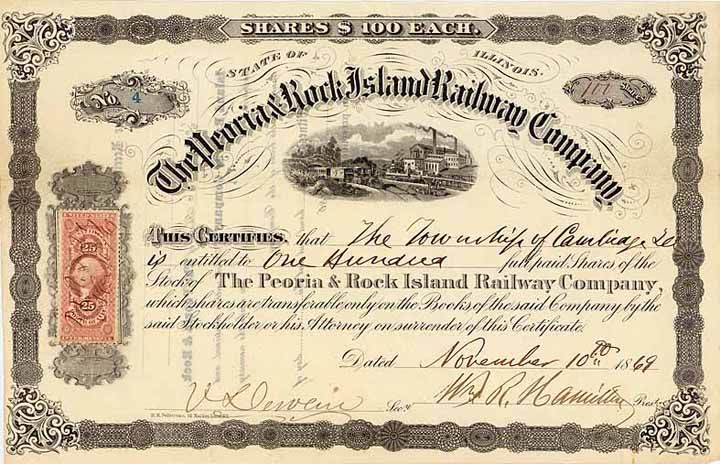 SHARES $ 100 EACH.
STATE OF ILLINOIS.
No. 4
The Peoria & Rock Island Railway Company.
THIS CERTIFIES, that The Township of Cambridge
is entitled to One Hundred full paid Shares of the
Stock of The Peoria & Rock Island Railway Company,
which shares are transferable only on the Books of the said Company by the
said Stockholder or his Attorney on surrender of this Certificate.
Dated November 10th 1869
Secy. Wm R. Hamilton Prest.
25 25